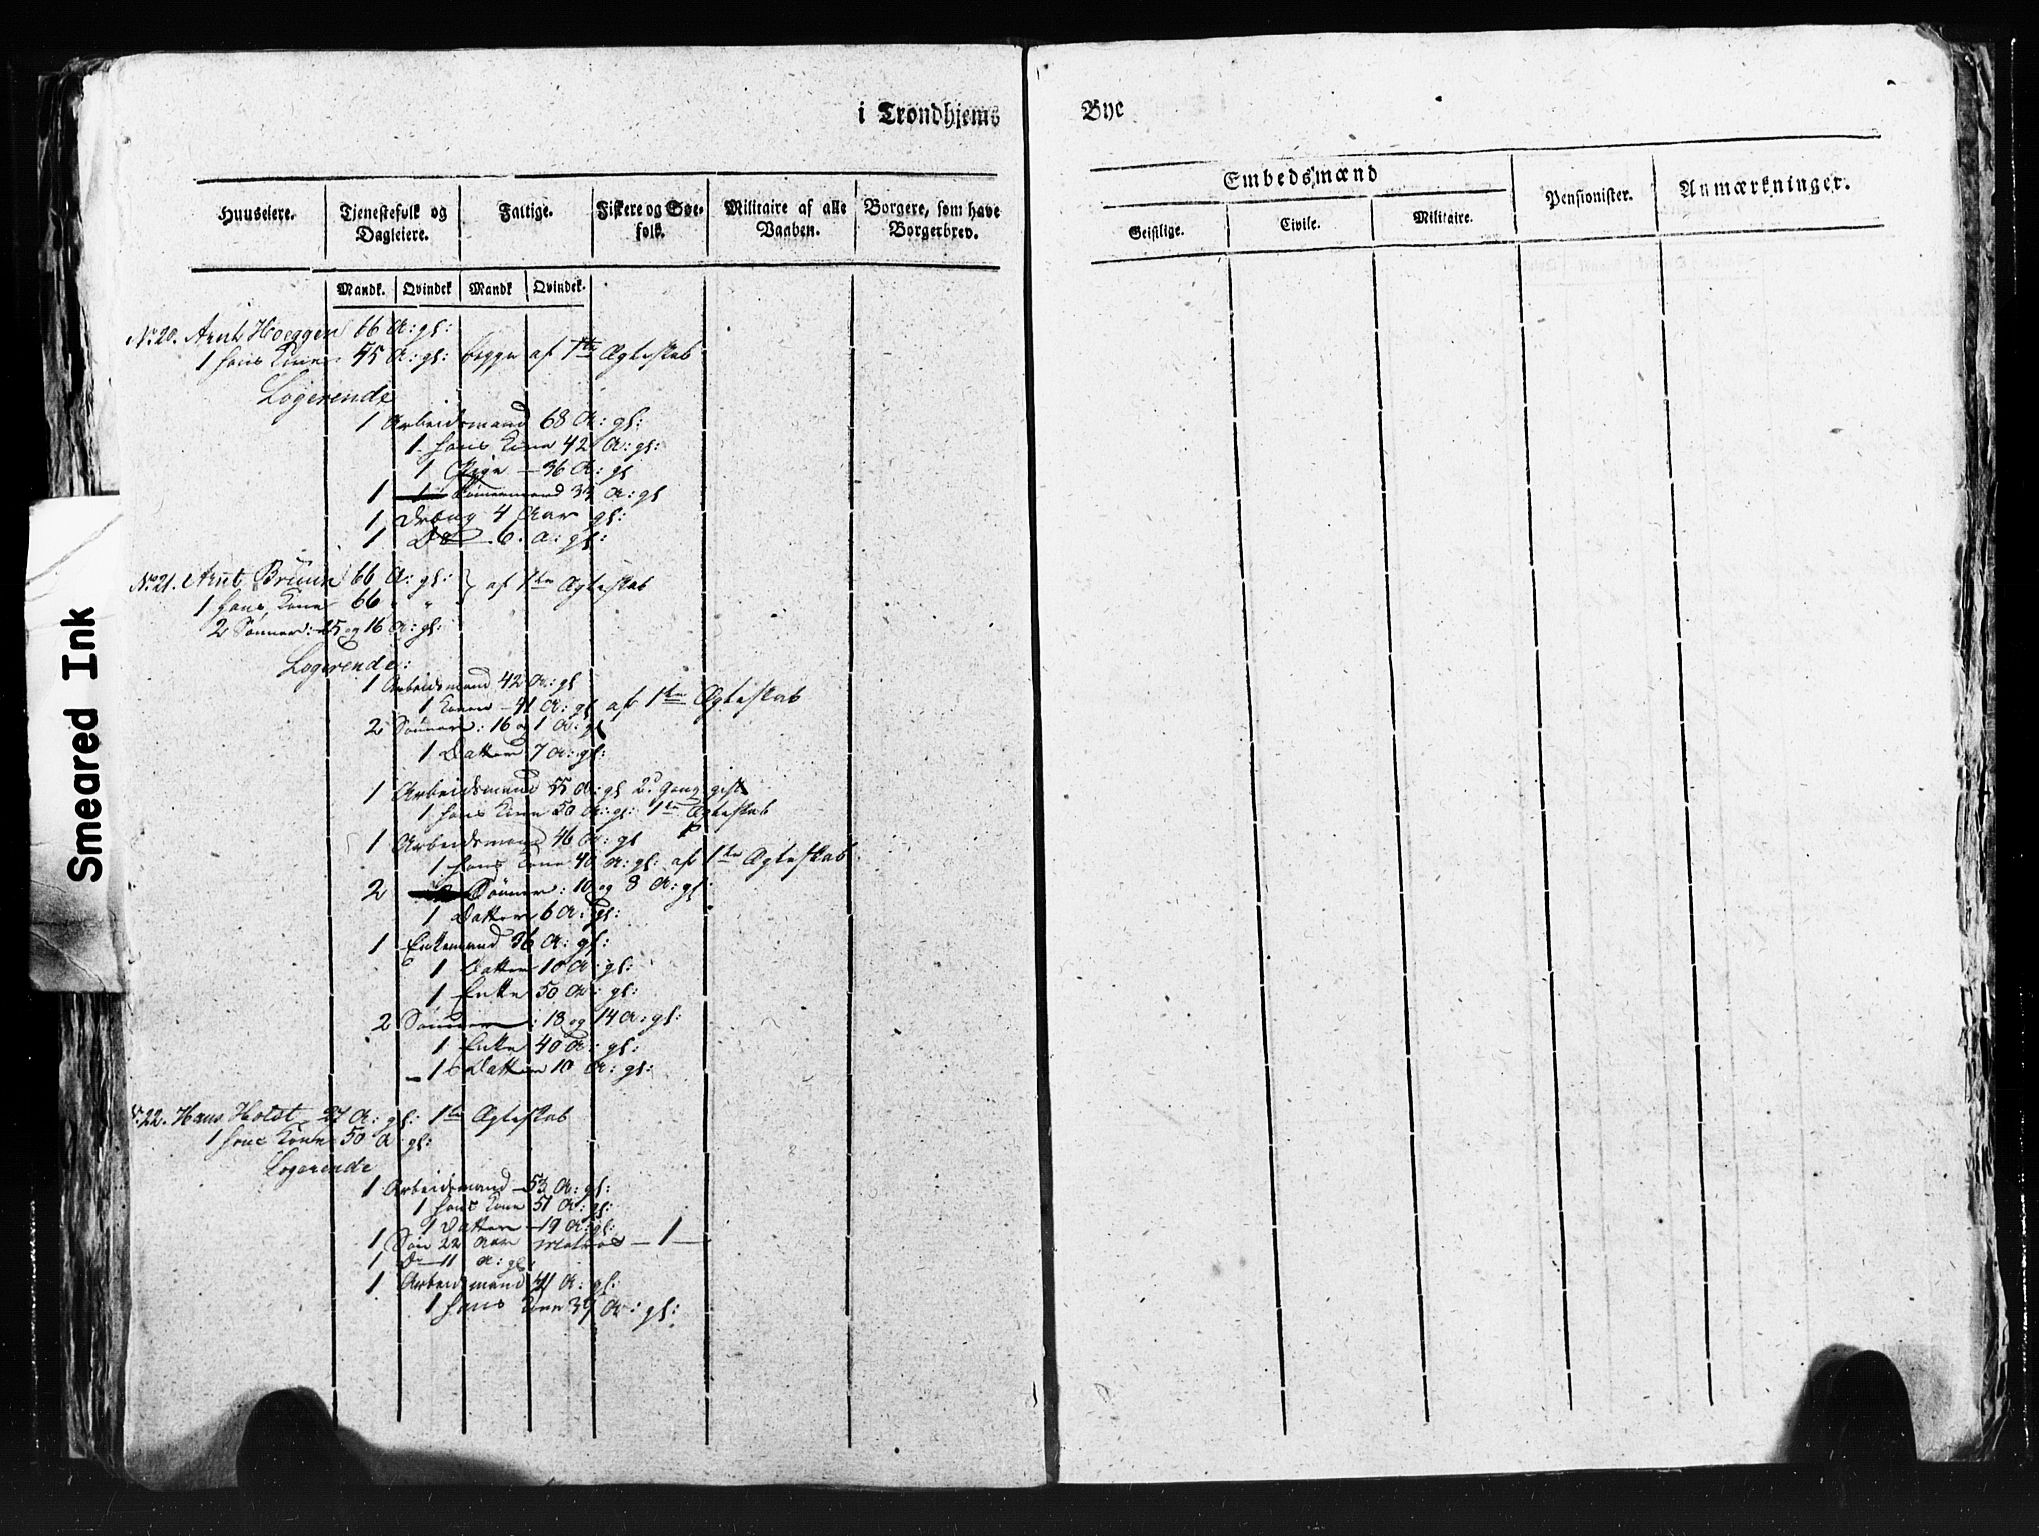 i Trondhjems
Huuseiere. Tjenestefolk og Dagleiere. Fattige. Fiskere og Søefolk. Militaire af alle Vaaben. Borgere, som have Borgerbrev.
Mandk. Qvindek Mandk Qvindek.
No 20. Arnt Hoeggen 66 A: gl:
1 hans Kone 55 A: gl: begge af 1te Ægteskab
Logerende
1 Arbeidsmand 68 A: gl:
1 hans Kone 42 A: gl:
1 Pige - 36 A: gl
1 Tømermand 33 A: gl
1 Dreng 4 Aar gl:
1 Do 6 A: gl:
No 21. Arnt Bruun 66 A: gl: } af 1te Ægteskab
1 hans Kone 66 " "
2 Sønner: 25 og 16 A: gl:
Logerende:
1 Arbeidsmand 42 A: gl
1 Kone - 41 A: gl af 1te Ægteskab
2 Sønner: 16 og 1 A: gl
1 Datter 7 A: gl:
1 Arbeidsmand 55 A: gl 2d Gang gift
1 hans Kone 50 A: gl: 1te Ægteskab
1 Arbeidsmand 46 A: gl
1 hans Kone 40 A: gl: af 1te Ægteskab
2 Sønner: 10 og 8 A: gl
1 Datter 6 A: gl:
1 Enkemand 36 A: gl:
1 Datter 10 A: gl:
1 Enke 50 A: gl:
2 Sønner: 18 og 14 A: gl:
1 Enke 40 A: gl:
1 Datter 10 A: gl:
No 22. Hans Holst 27 A: gl: 1te Ægteskab
1 hans Kone 50 A gl:
Logerende
1 Arbeidsmand - 53 A: gl:
1 hans Kone 51 A: gl:
1 Datter - 19 A: gl:
1 Søn 22 Aar Matros - 1 -
1 Do - 11 A: gl.
1 Arbeidsmand 41 A: gl:
1 hans Kone 39 A: gl:
Bye
Embedsmænd
Geistlige. Civile. Militaire. Pensionister. Anmærkninger.
Smeared Ink